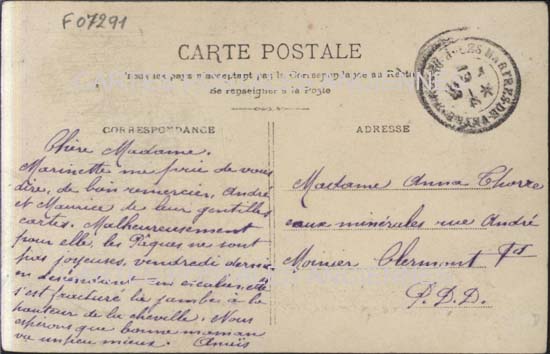 F07291
CARTE POSTALE
Tous les pays n'acceptant pas la Correspondance au Recto
Se renseigner à la Poste
CORRESPONDANCE
Chère Madame.
Marinette me prie de vous
dire, de bien remercier, André
et Maurice de leur gentilles
cartes. Malheureusement
pour elle, les Pâques ne sont
pas joyeuses, vendredi dernier
en descendant un escalier, elle
s'est fracturé la jambe à la
hauteur de la cheville. Nous
espérons que bonne maman
va un peu mieux.
ADRESSE
Madame Anna
eaux minérales rue André
Moinier Clermont Fd
P.D.D.
MARTRES-DE-VEYRE